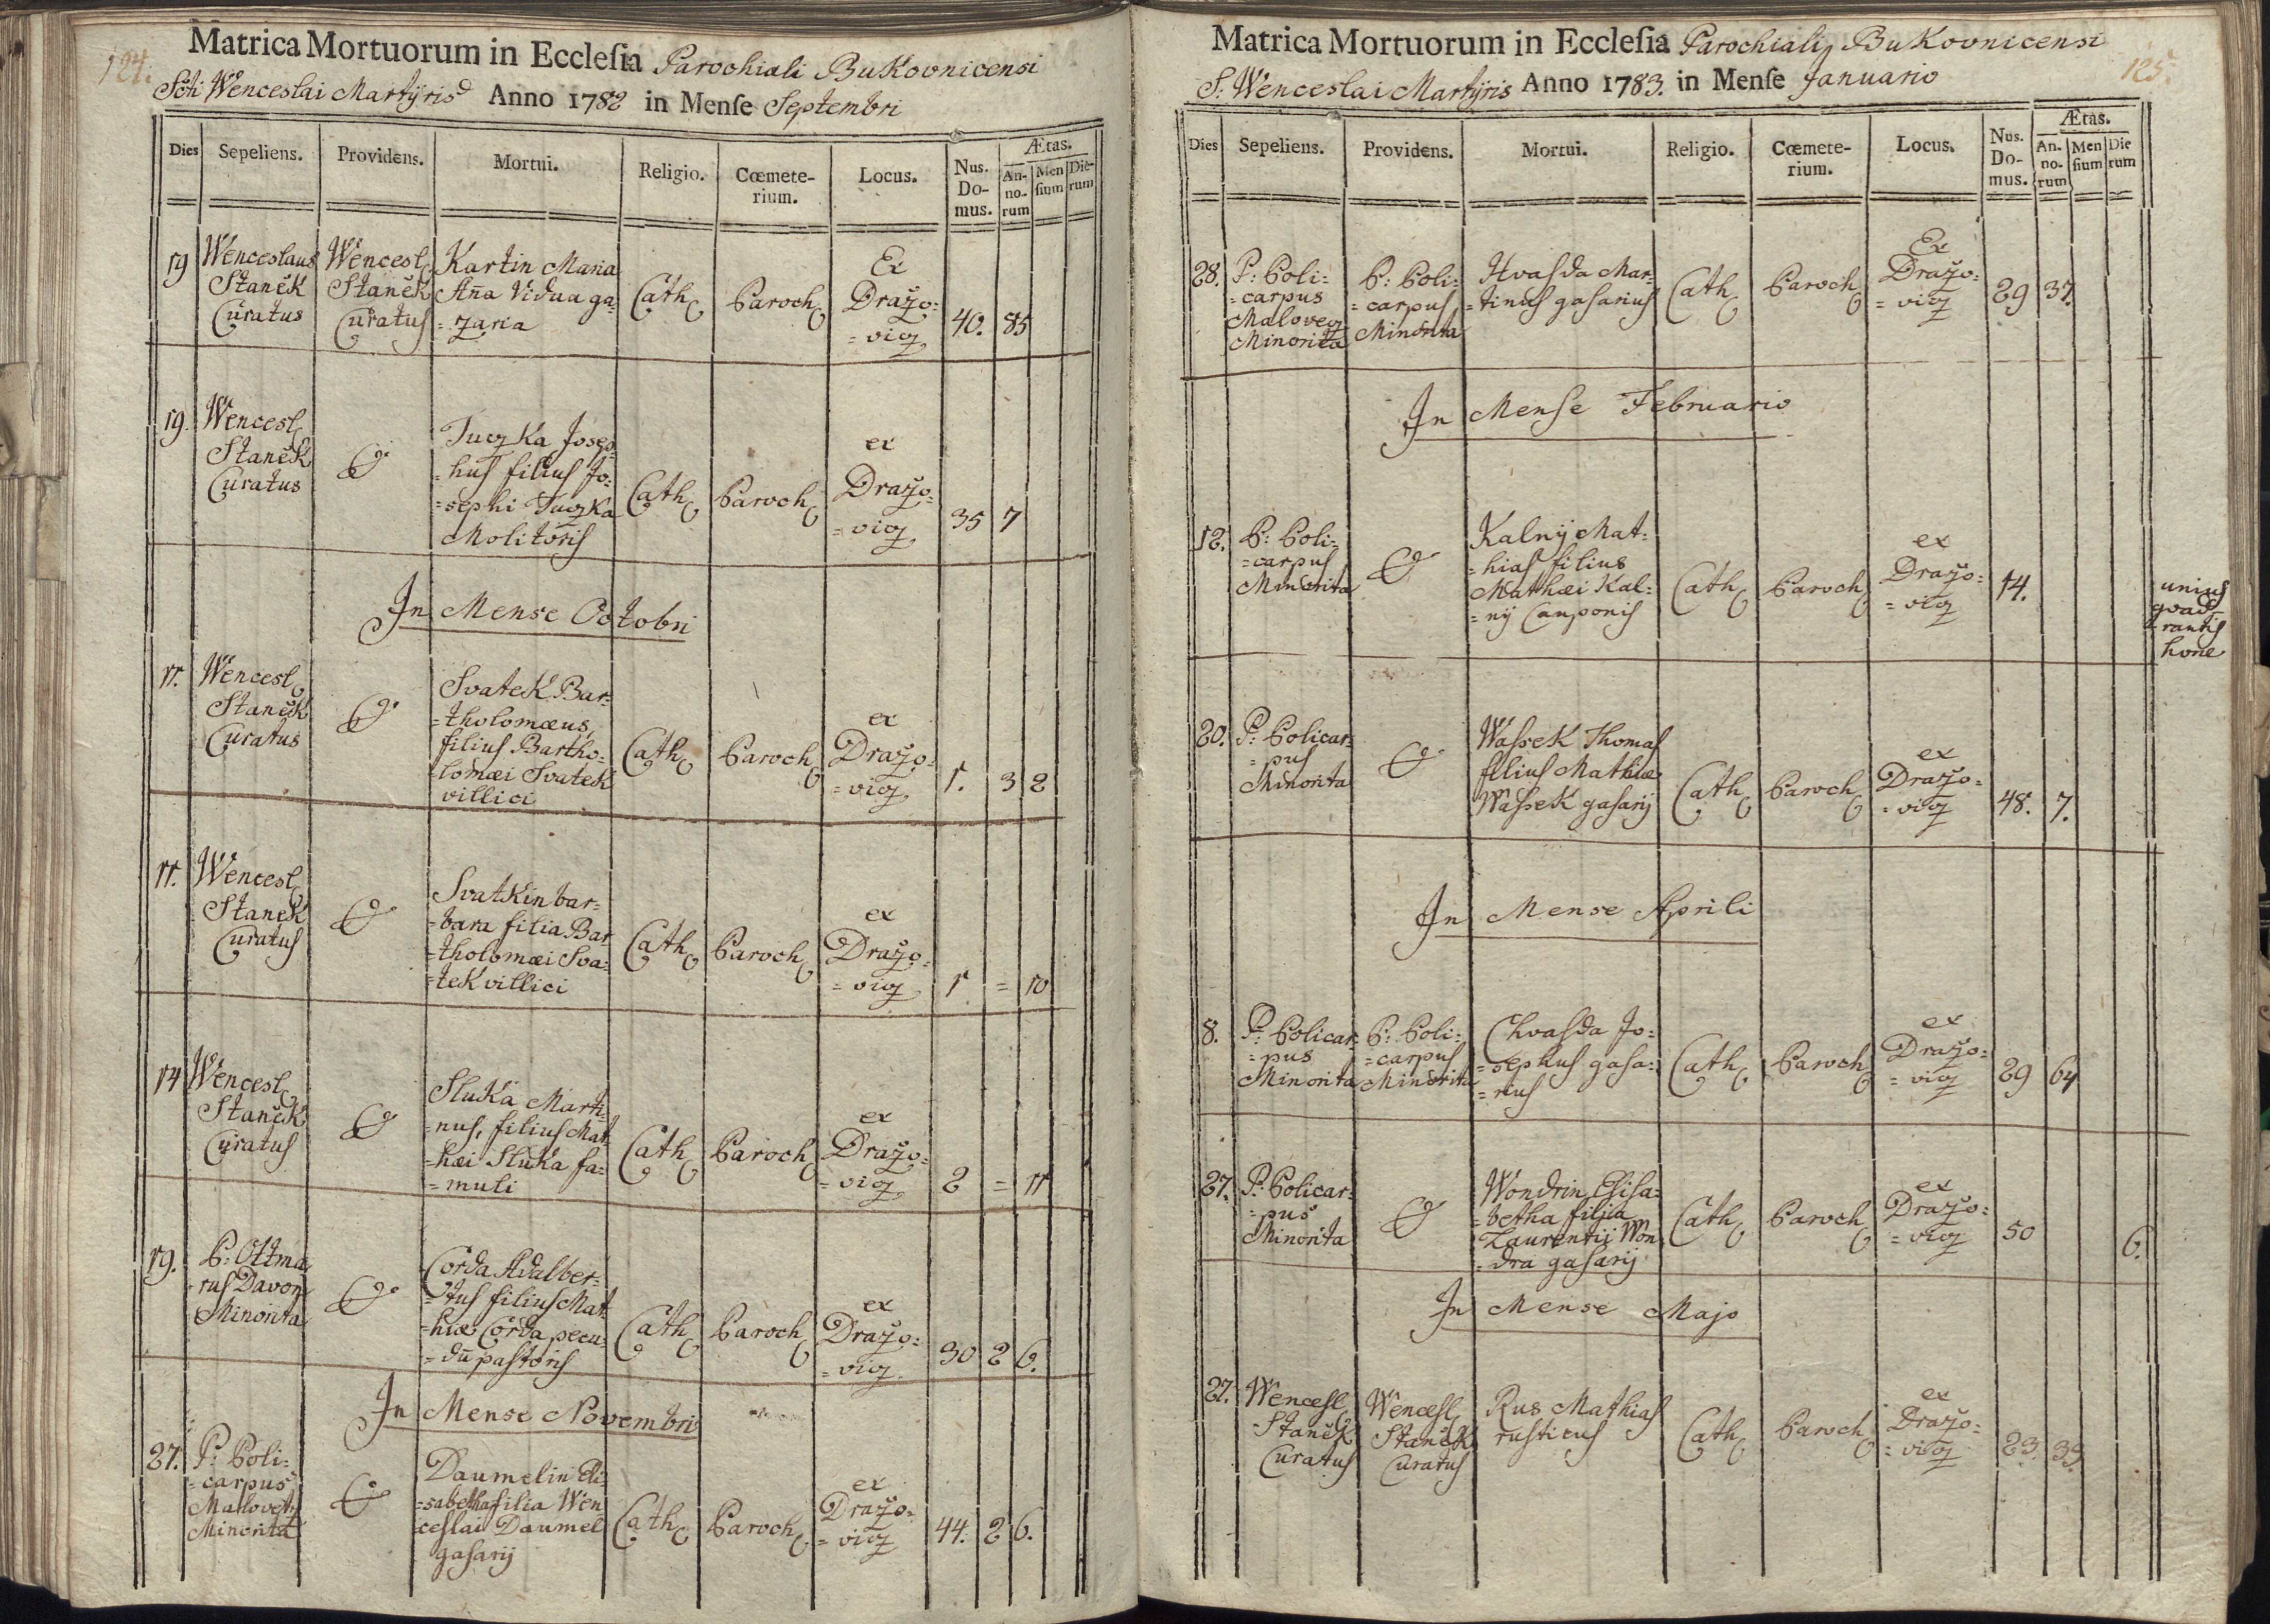 124.
Matrica Mortuorum in Ecclesia Parochiali Bukovnicensi
Scti Wenceslai Martÿris Anno 1782 in Mense Septembri
Dies Sepeliens. Providens. Mortui. Religio. Cœmete-
rium. Locus. Nus.
Do-
mus. Ætas.
An-
no-
rum Men
sium Die-
rum
19 Wenceslaus
Staněk
Curatus
Wencesl
Staněk
Curatus
Kartin Maria
Aña Vidua ga=
=zaria
Cath Paroch
Ex
Drazo=
=vicz
40. 85
19. Wencesl
Staněk
Curatus
Tuczka Josep=
=hus filius Jo=
=sephi Tuczka
Molitoris
Cath Paroch
ex
Drazo=
=vicz
35 7
In Mense Octobri
11. Wencesl
Staněk
Curatus
Svatek Bar=
=tholomæus,
filius Bartho=
lomæi Svatek
villici
Cath Paroch
ex
Drazo=
=vicz
1. 3 2
11. Wencesl
Staněk
Curatus
Svatkin bar=
=bara filia Bar
=tholomæi Sva=
=tek villici
Cath Paroch
ex
Drazo=
=vicz
1 = 10
14 Wencesl
Staněk
Curatus
Sluka Marti=
=nus, filius Mat
=hæi Sluka fa=
=muli
Cath Paroch
ex
Drazo=
=vicz
2 = 11
19. P: Ottma
rus Davon
Minorita
Corda Adalber=
=tus filius Mat
=hiæ Corda pecu=
=dū pastoris
Cath Paroch
ex
Drazo=
=vicz
30 2 6.
In Mense Novembri
27. P: Poli=
=carpus
Malovetz
Minorita
Daumelin Eli=
=sabetha filia Wen
ceslai Daumel
gasarij
Cath Paroch
ex
Drazo=
=vicz
44. 2 6.
125.
Matrica Mortuorum in Ecclesia Parochiali Bukovnicensi
S. Wenceslai Martÿris Anno 1783. in Mense Januario
Dies Sepeliens. Providens. Mortui. Religio. Cœmete-
rium. Locus. Nus.
Do-
mus. Ætas.
An-
no-
rum Men
sium Die
rum
28. P: Poli=
=carpus
Malovecz
Minorita
P: Poli=
=carpus
Minorita
Hvasda Mar=
=tinus gasarius
Cath Paroch
Ex
Drazo=
=vicz
29 37.
In Mense Februario
12. P: Poli=
=carpus
Minorita
Kalnÿ Mat=
=hias filius
Mathæi Kal=
=nÿ Cauponis
Cath Paroch
ex
Drazo=
=vicz
14.
unius
quad
rantis
horæ
20. P: Policar=
=pus
Minorita
Wassek Thomas
filius Mathiæ
Wassek gasarij
Cath Paroch
ex
Drazo=
=vicz
48. 7.
In Mense Aprili
8. P: Policar=
=pus
Minorita
P: Poli=
=carpus
Minorita
Chvasda Jo=
=sephus gasa=
=rius
Cath Paroch
ex
Drazo=
=vicz
29 64
27. P: Policar=
=pus
Minorita
Wondrin Elisa=
=betha filia
Laurentij Won
=dra gasarij
Cath Paroch
ex
Drazo=
=vicz
50 6.
In Mense Majo
27. Wencesl
Staněk
Curatus
Wencesl
Staněk
Curatus
Rus Mathias
rusticus
Cath Paroch
ex
Drazo=
=vicz
23. 35.